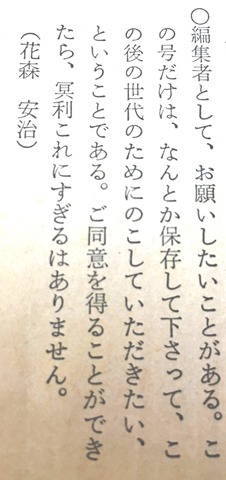 〇編集者として、お願いしたいことがある。こ
の号だけは、なんとか保存して下さって、こ
の後の世代のためにのこしていただきたい、
ということである。ご同意を得ることができ
たら、冥利これにすぎるはありません。
（花森　安治）